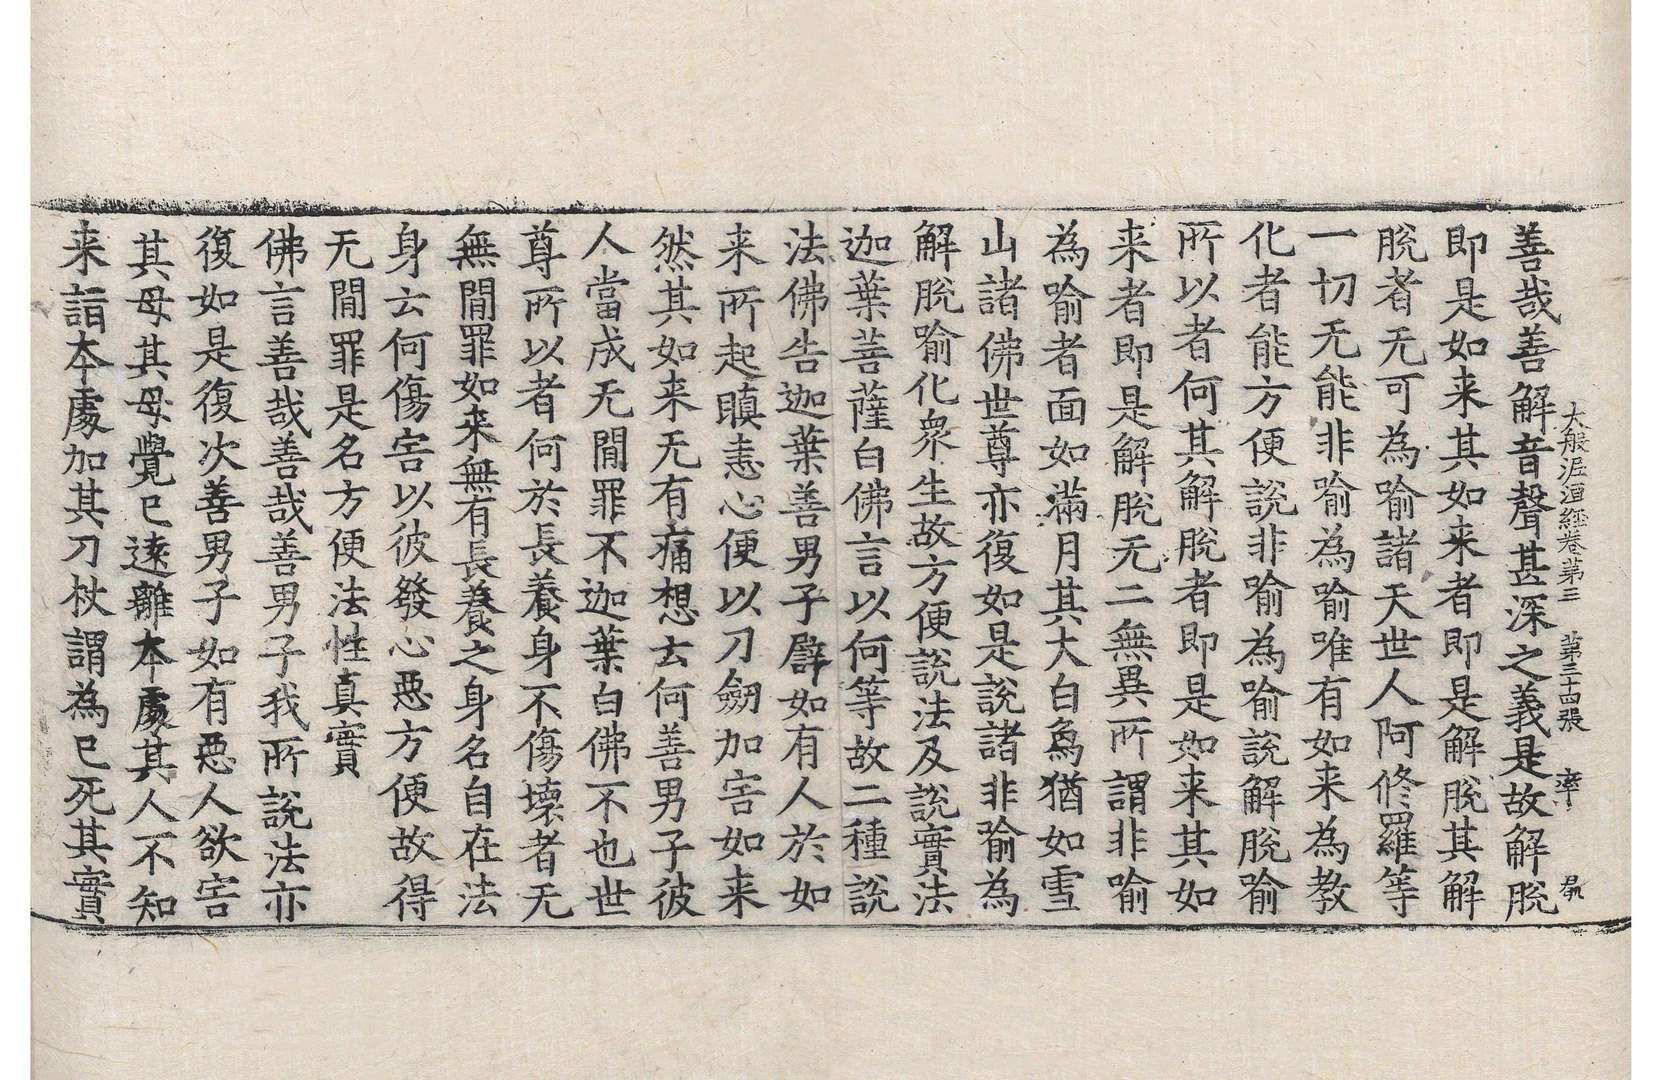 大般泥洹經卷第三　第三十四張　率
善哉善解音聲甚深之義是故解脫
即是如来其如来者即是解脫其解
脫者无可為喻諸天世人阿修羅等
一切无能非喻為喻唯有如来為教
化者能方便說非喻為喻說解脫喻
所以者何其解脫者即是如来其如
来者即是解脫无二無異所謂非喻
為喻者面如滿月其大白象猶如雪
山諸佛世尊亦復如是說諸非喻為
解脫喻化衆生故方便說法及說實法
迦葉菩薩白佛言以何等故二種說
法佛告迦葉善男子譬如有人於如
来所起瞋恚心便以刀劒加害如来
然其如来无有痛想去何善男子彼
人當成无閒罪不迦葉白佛不也世
尊所以者何於長養身不傷壞者无
無閒罪如来無有長養之身名自在法
身云何傷害以彼發心惡方便故得
无閒罪是名方便法性真實
佛言善哉善哉善男子我所說法亦
復如是復次善男子如有惡人欲害
其母其母覺已遠離本處其人不知
来詣本處加其刀杖謂為已死其實